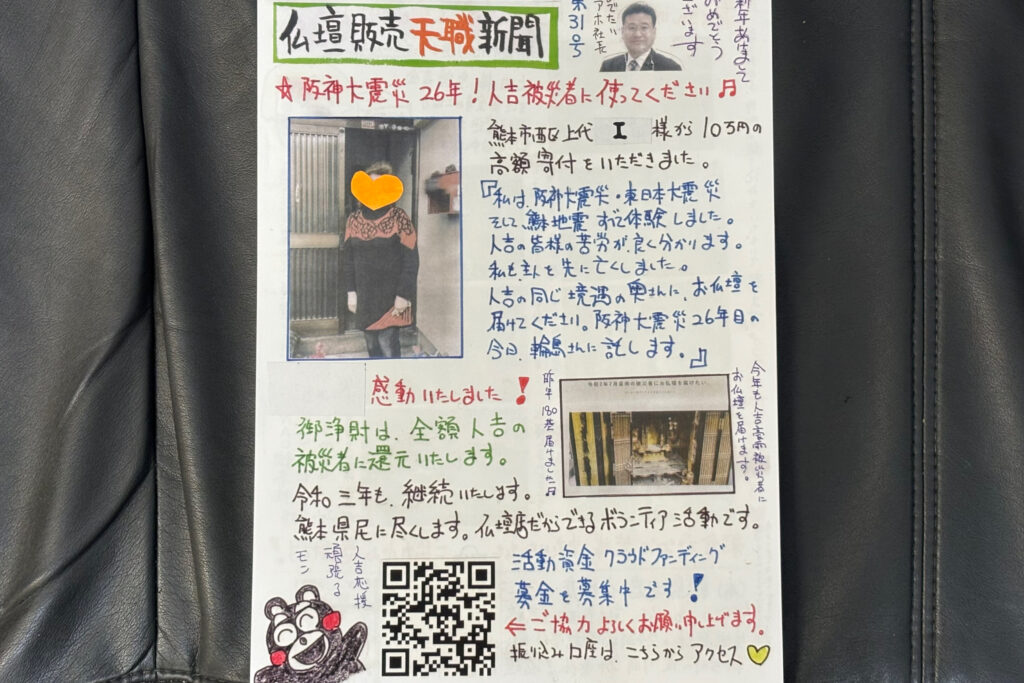 仏壇販売天職新聞
第31号
新年あけまして
おめでとう
ございます
☆阪神大震災26年！人吉被災者に使ってください♫
熊本市西区上代 I 様から10万円の
高額寄付をいただきました。
『私は、阪神大震災・東日本大震災
そして、熊本地震すべて体験しました。
人吉の皆様の苦労が、良く分かります。
私も、主人を先に亡くしました。
人吉の同じ境遇の奥さんに、お仏壇を
届けてください。阪神大震災26年目の
今日、輪島さんに託します。』
感動いたしました！
御浄財は、全額人吉の
被災者に還元いたします。
昨年180基届けました♫
令和2年7月豪雨の被災者にお仏壇を届けたい
今年も人吉豪雨被災者に
お仏壇を届けます。
令和三年も、継続いたします。
熊本県民に尽くします。仏壇店だからできるボランティア活動です。
人吉応援
頑張る
モン
活動資金クラウドファンディング
募金を募集中です！
←ご協力よろしくお願い申し上げます。
振り込み口座は、こちらからアクセス